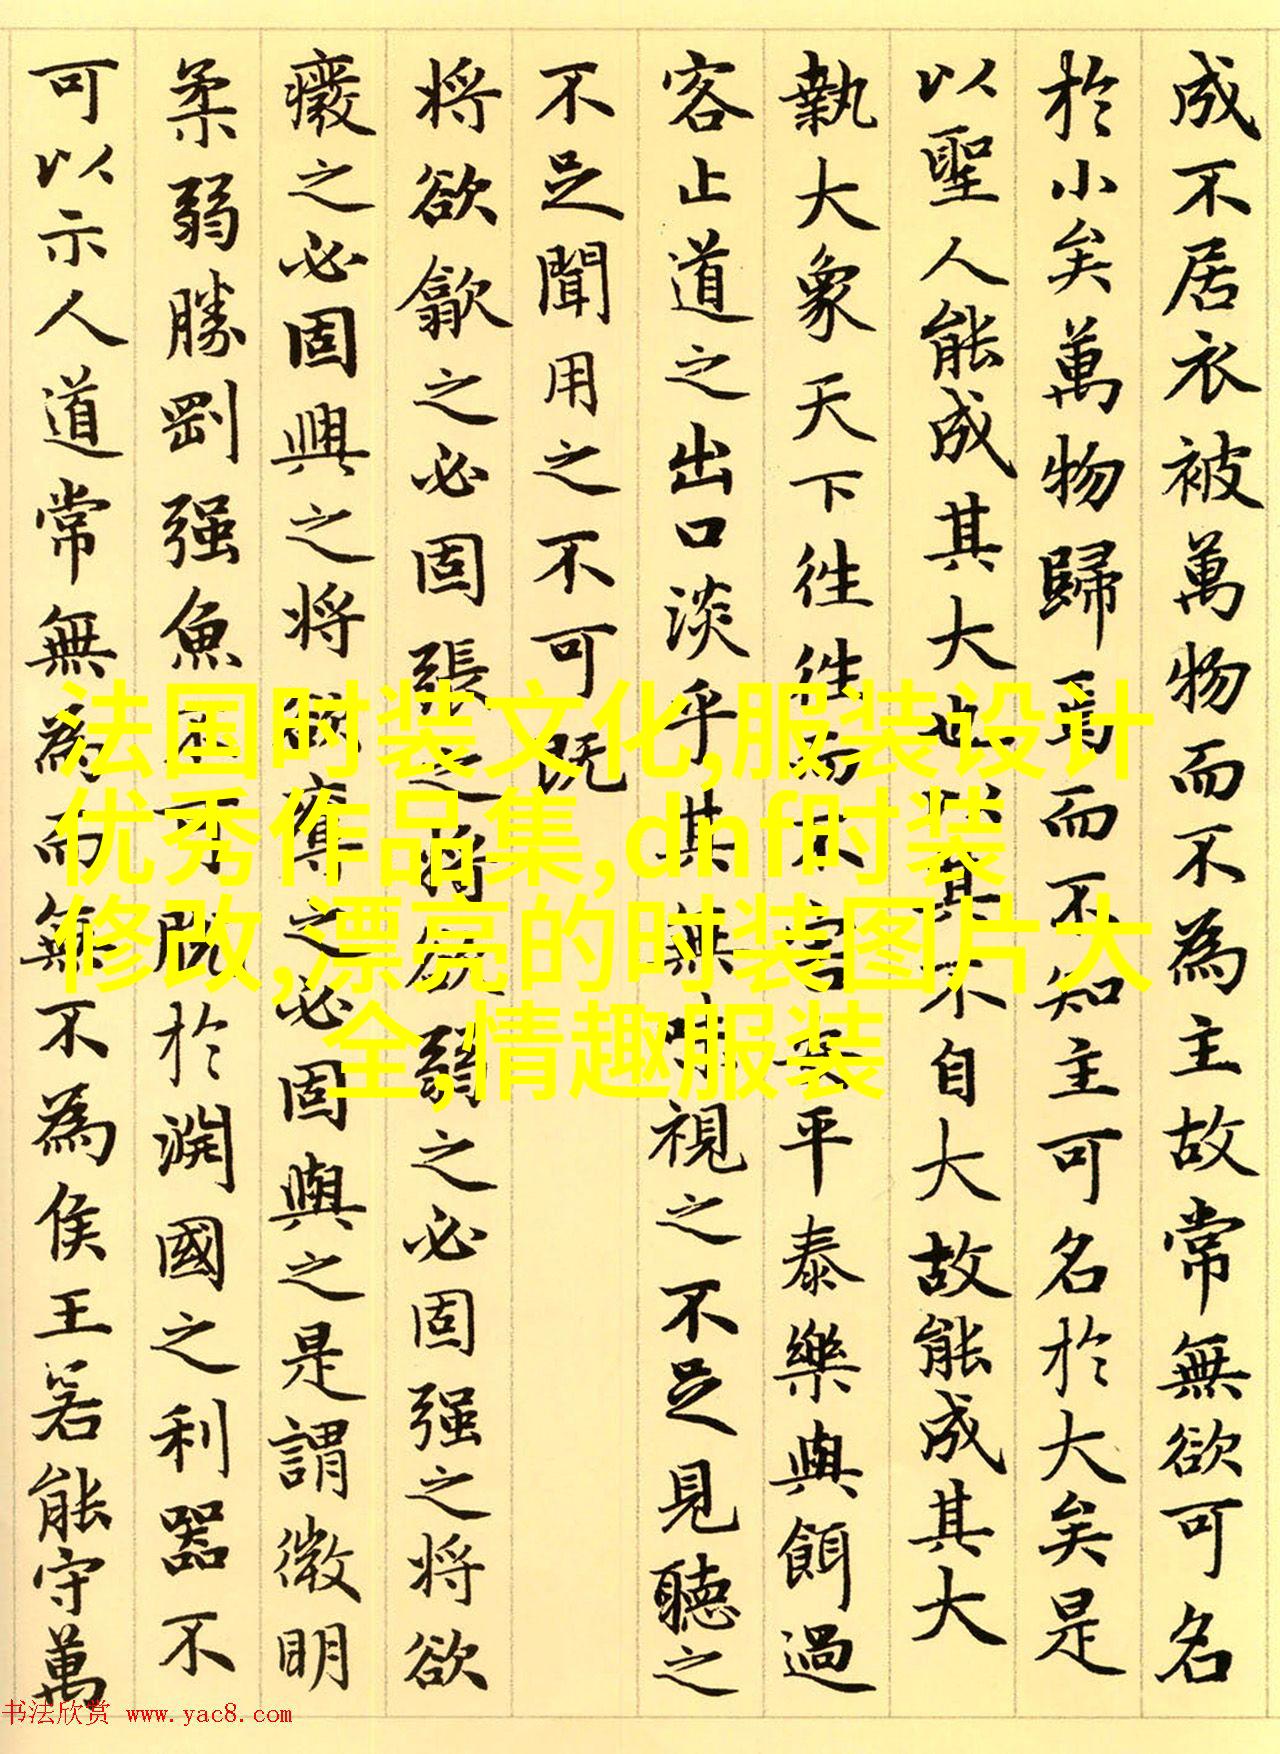 成不居衣被萬物而不為主故常無欲可名
於小矣萬物歸焉而不知主可名於大矣是
以聖人能成其大也以其不自大故能成其大
執大象天下徃徃而不害安平泰樂與餌過
客止道之出口淡乎其無味視之不足見聽之
不足聞用之不可既
将欲歙之必固張之将欲弱之必固强之将欲
癈之必固興之将欲奪之必固與之是謂微明
柔弱勝剛强魚不可脱於淵國之利器不
可以示人道常無為而無不為侯王若能守萬
法国时装文化,服装设计
优秀作品集,dnf时装
修改,漂亮的时装图片大
全,情趣服装
书法欣赏 www.yac8.com